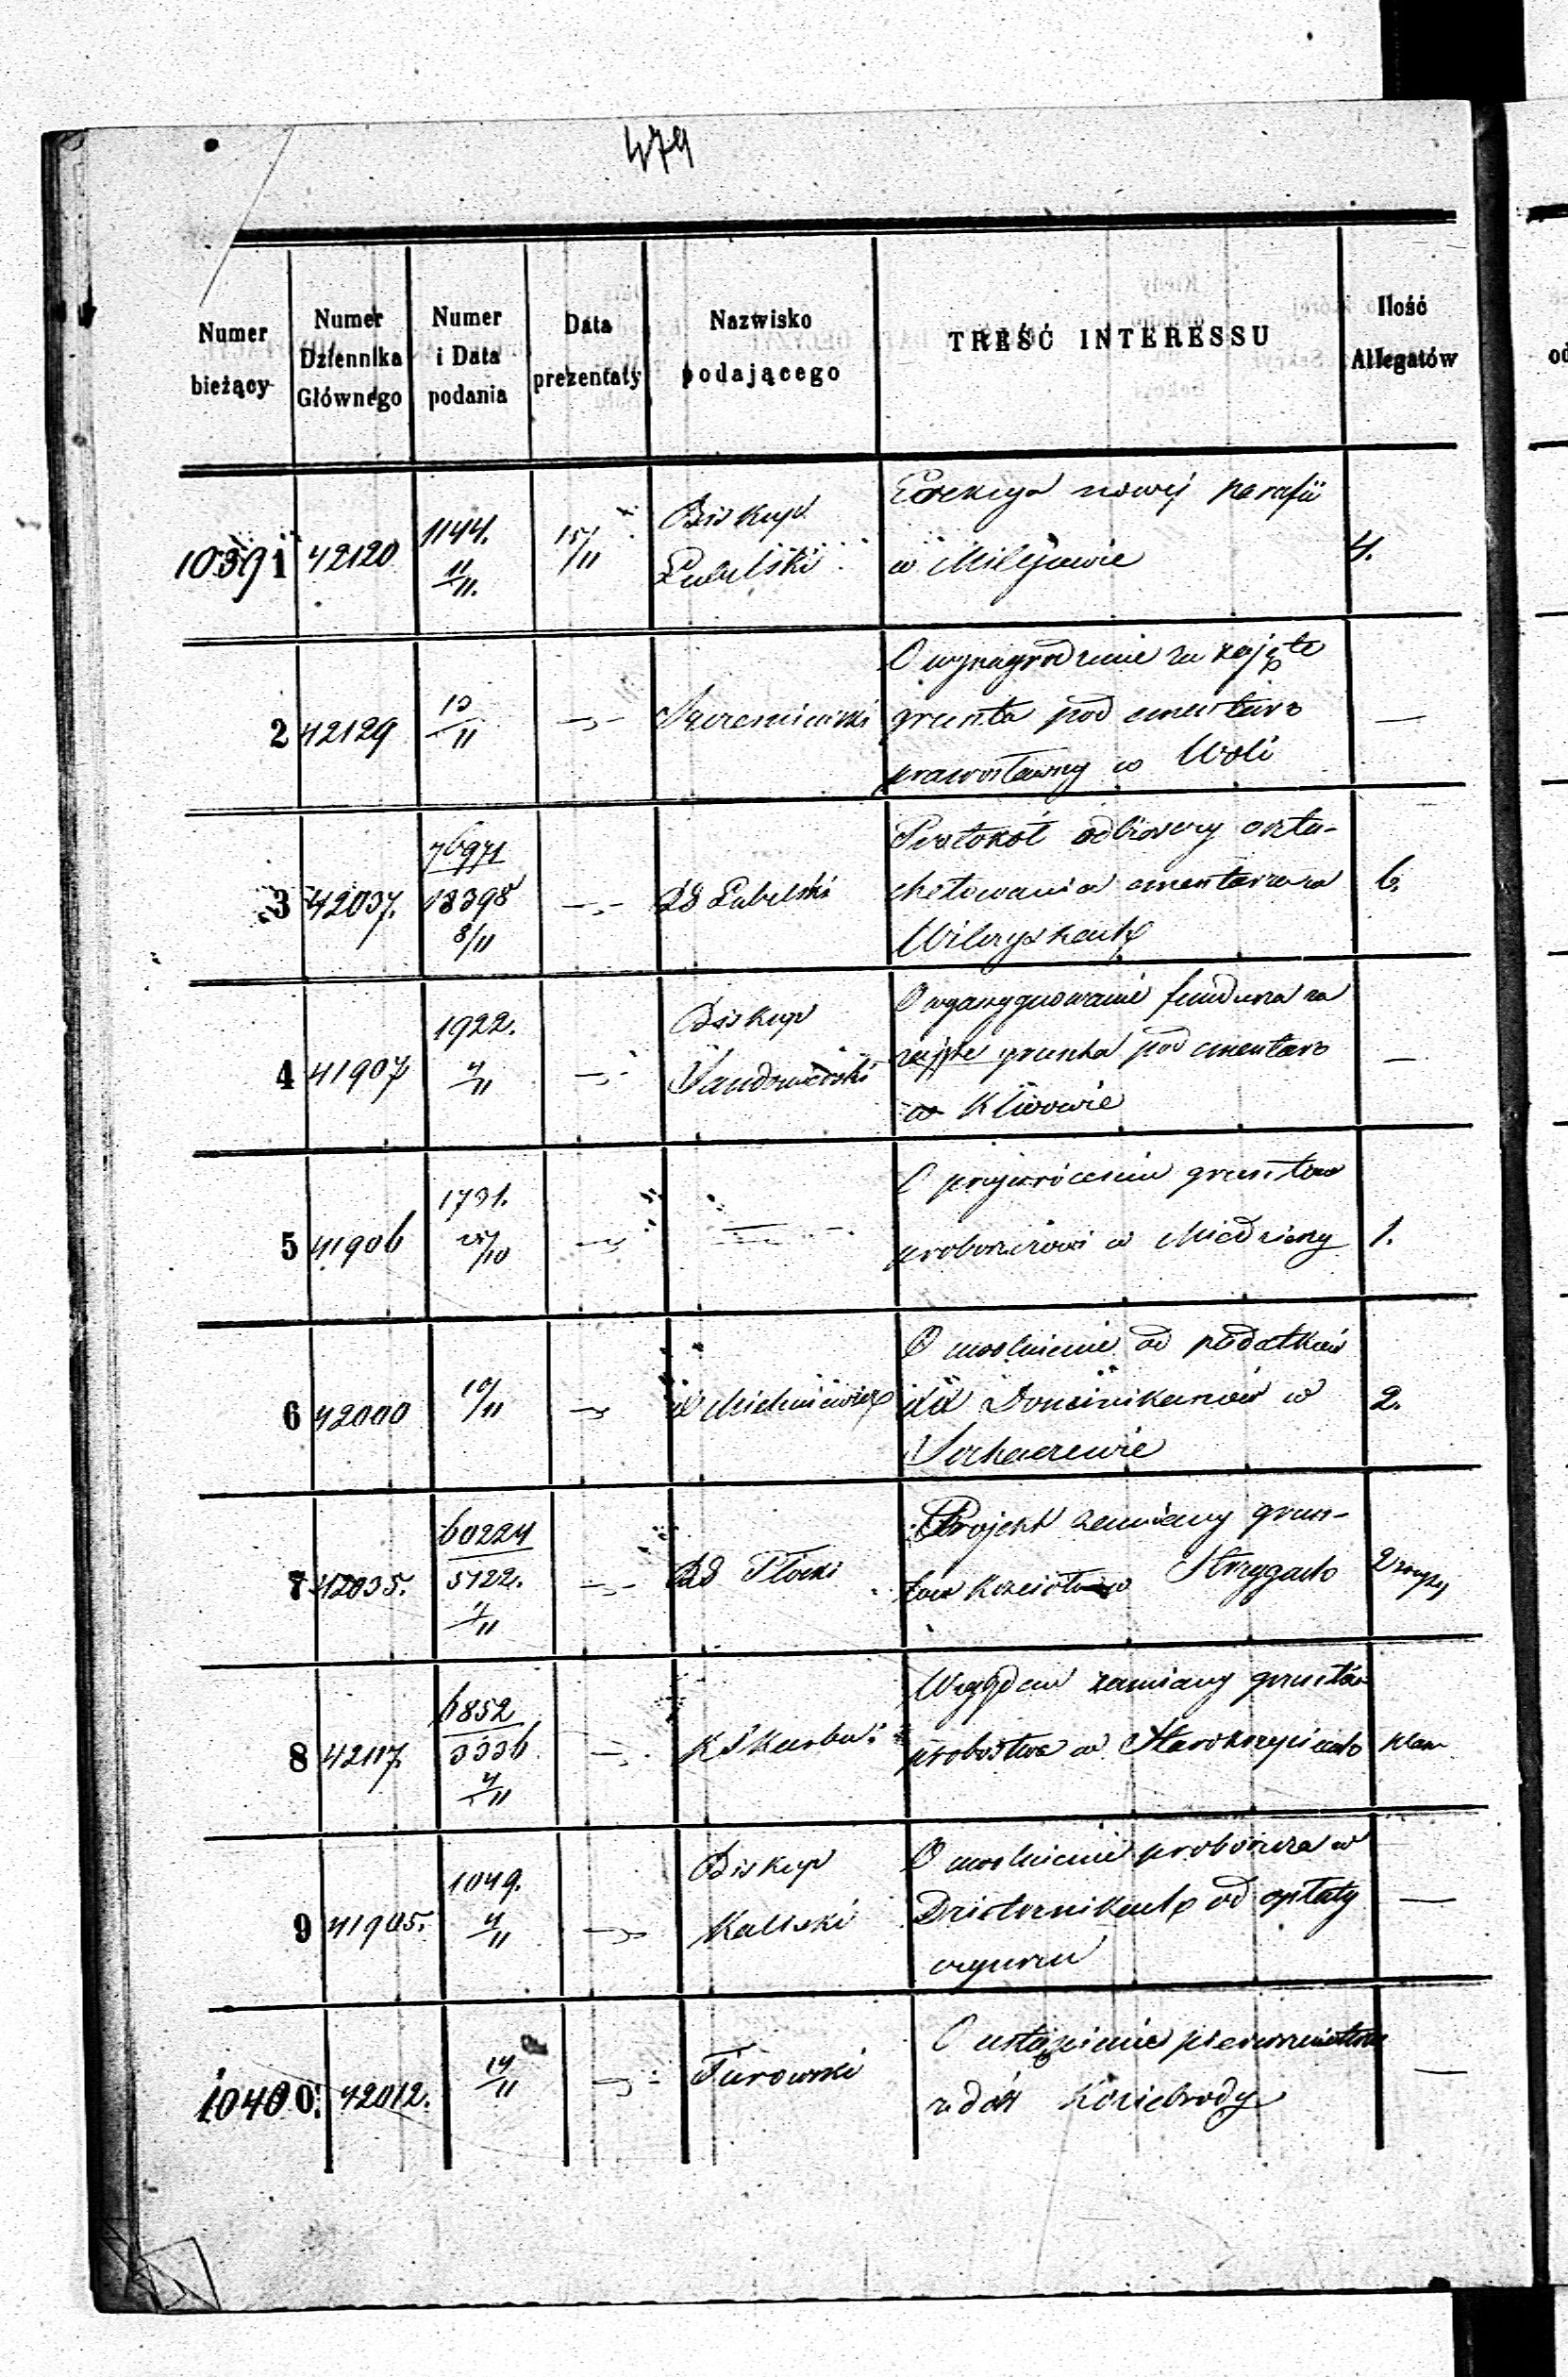 479
Numer bieżący
Numer Dziennika Głównego
Numer i Data podania
Data prezentaty
Nazwisko podającego
TREŚĆ INTERESSU
Ilość Allegatów
10391 42120 1144. 11/11. 15/11 Biskup Lubelski Erekcya nowéj parafii
w Milejowie 4.
2 42129 13/11 -„- O wynagrodzenie za zajęte
grunta pod cmentarz —
prawosławny w Woli
3 42037. 76971/18398 8/11 -„- RG Lubelski Protokół odbiorczy oszta-
chetowania cmentarza w 6.
4 41907 1922. 4/11 -„- Biskup Sandomierski O wyassygnowanie funduszu za
zajęte grunta pod cmentarz —
w Klwowie
5 41906 1731. /10 -„- — O przywrócenie gruntów
proboszczowi w Miedzierzy 1.
6 42000 10/11 -„- X Michniewicz O uwolnienie od podatków
XX Dominikanów w 2.
Sochaczewie
7 42035. 60224/5122. /11 -„- RG Płocki Projekt zamiany grun-
tów kościoła w Strzygach
8 42117. 6852/3336 4/11 -„- K Skarbu Względem zamiany gruntów
probostwa w Starokrzepicach plan
9 41905. 1049. 4/11 -„- Biskup Kaliski O uwolnienie proboszcza w
od opłaty —
czynszu
10400. 42012. 14/11 -„- Turowski O ustąpienie pierwszeństwa
z dóbr Koziebrody —